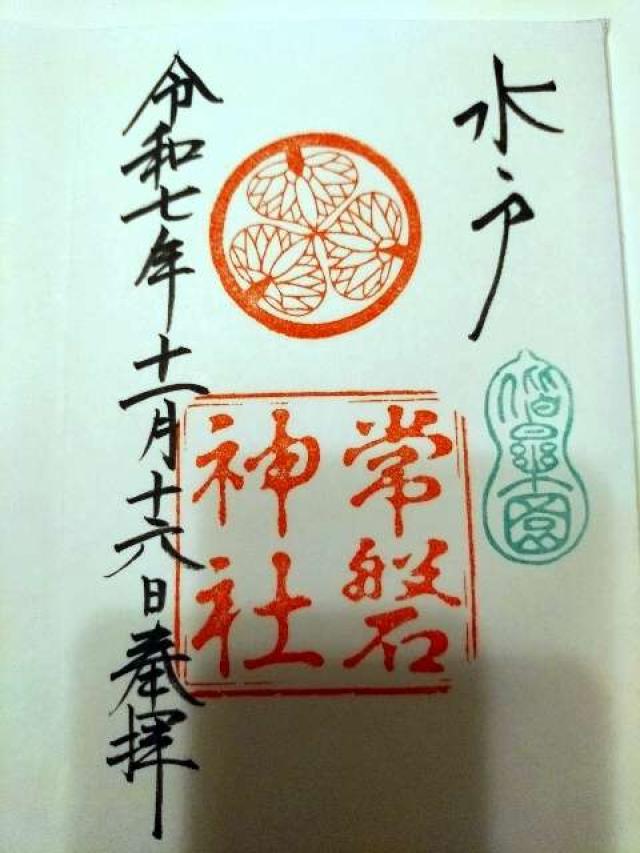 水戸
偕楽園
常磐
神社
令和七年十一月十六日奉拝